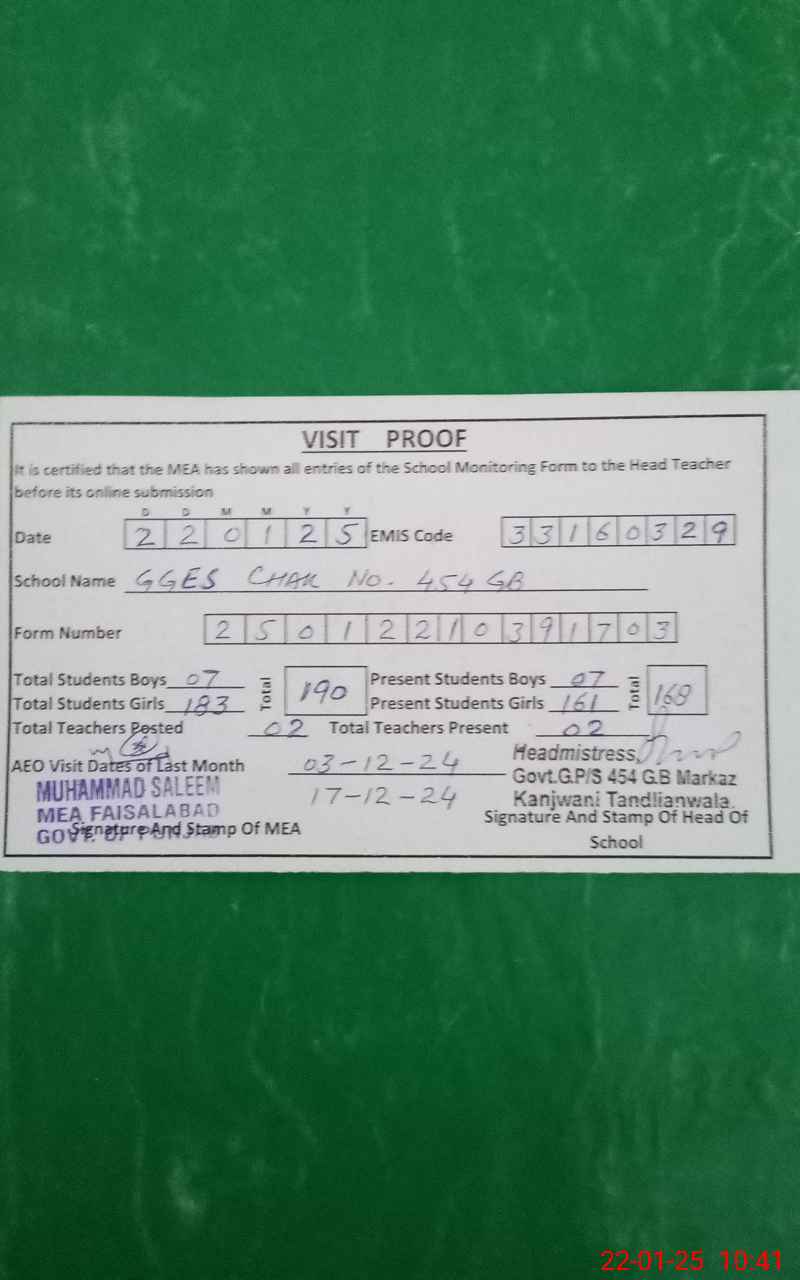 VISIT PROOF
It is certified that the MEA has shown all entries of the School Monitoring Form to the Head Teacher
before its online submission
D D M M Y Y
Date 2 2 0 1 2 5 EMIS Code 3 3 1 6 0 3 2 9
School Name GGES CHAK No. 454 GB
Form Number 2 5 0 1 2 2 1 0 3 9 1 7 0 3
Total Students Boys 07 Total 190 Present Students Boys 07 Total 168
Total Students Girls 183 Present Students Girls 161
Total Teachers Posted 02 Total Teachers Present 02
AEO Visit Dates of Last Month 03-12-24 Headmistress
17-12-24 Govt.G.P/S 454 G.B Markaz
MUHAMMAD SALEEM Kanjwani Tandlianwala.
MEA FAISALABAD
GOVT. OF PUNJAB
Signature And Stamp Of MEA Signature And Stamp Of Head Of
School
22-01-25 10:41